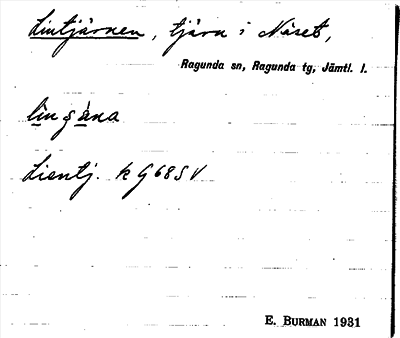 Lintjärnen, tjärn i Näset,
Ragunda sn, Ragunda tg, Jämtl. l.
Lientj. k G68SV
E. BURMAN 1931